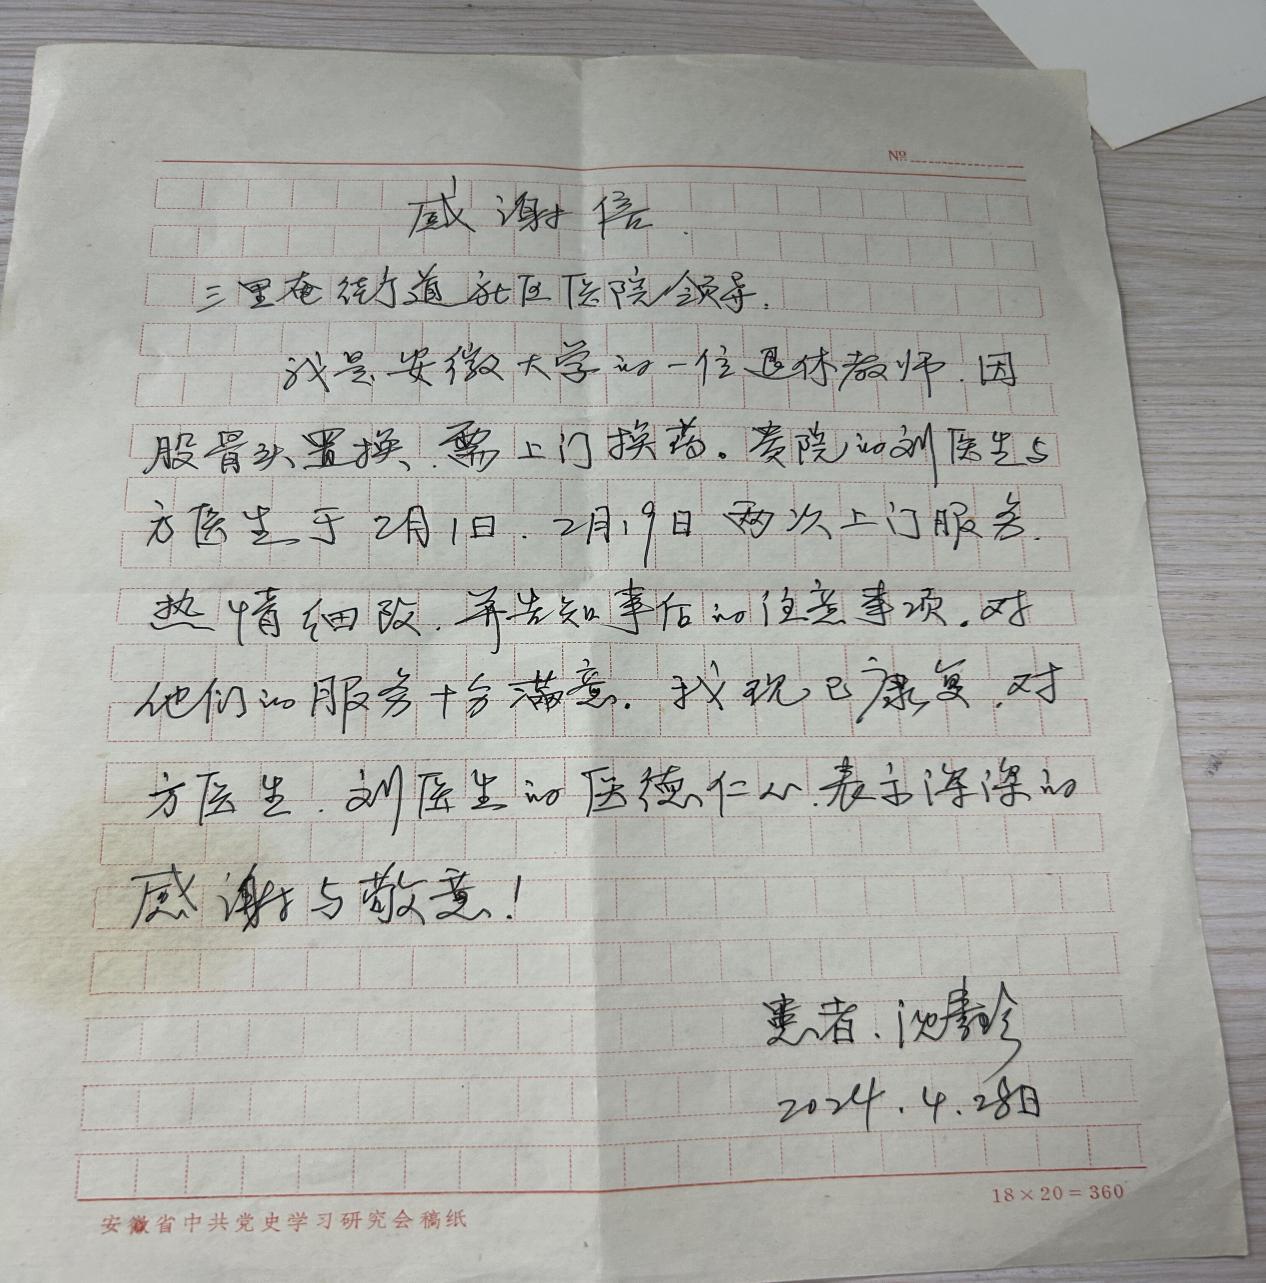 №
感谢信.
三里庵街道社区医院领导.
我是安徽大学的一位退休教师.因
股骨头置换、需上门换药。贵院的刘医生与
方医生于2月1日.2月19日两次上门服务.
热情细致.并告知事后的注意事项.对
他们的服务十分满意.我现已康复.对
方医生.刘医生的医德仁心.表示深深的
感谢与敬意!
患者.沈
2024.4.28日
18×20=360
安徽省中共党史学习研究会稿纸